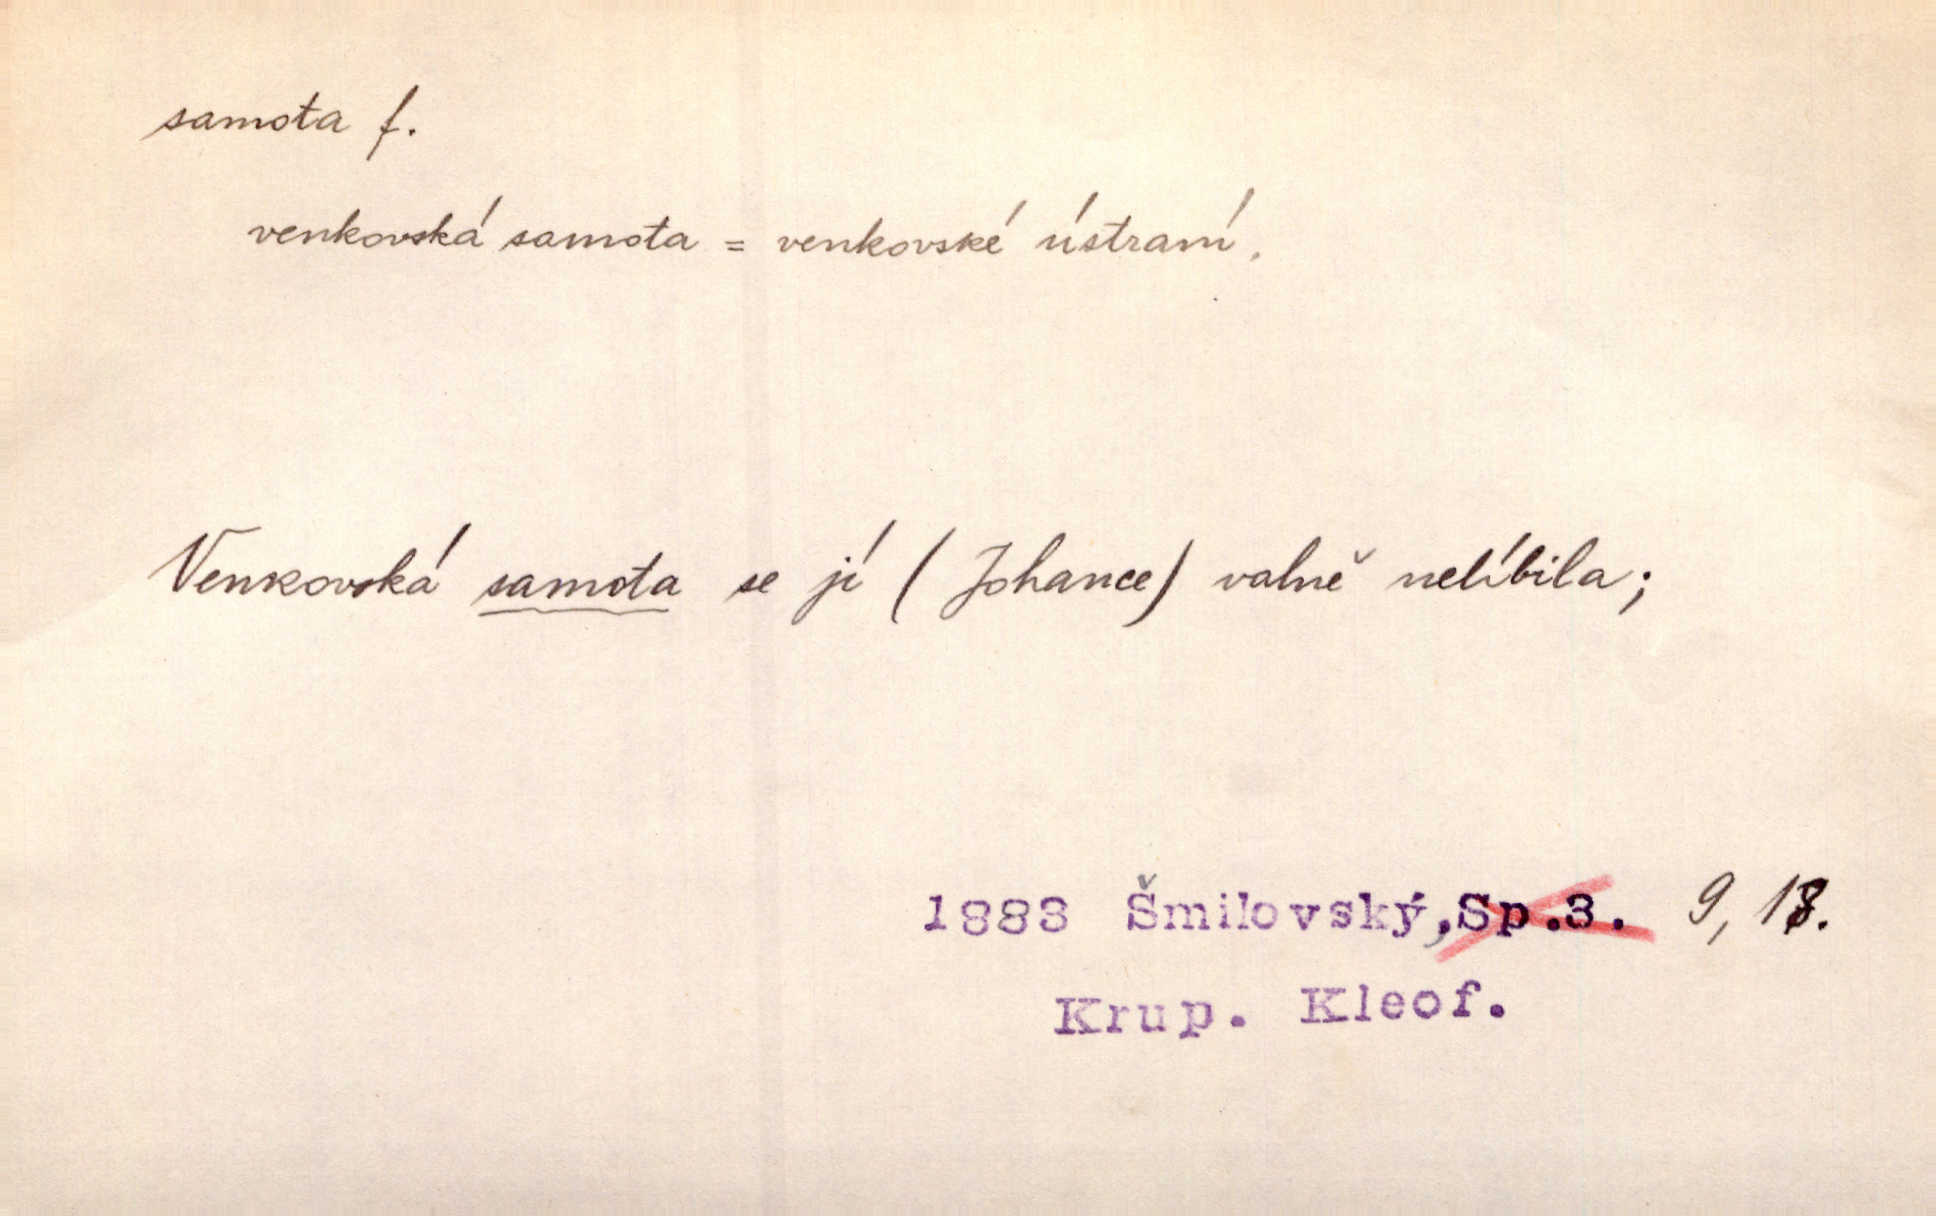 samota f.
venkovská samota = venkovské ústraní.
Venkovská samota se jí (Johance) valně nelíbila;
1883 Šmilovský, Sp.3. 9,
Krup. Kleof.